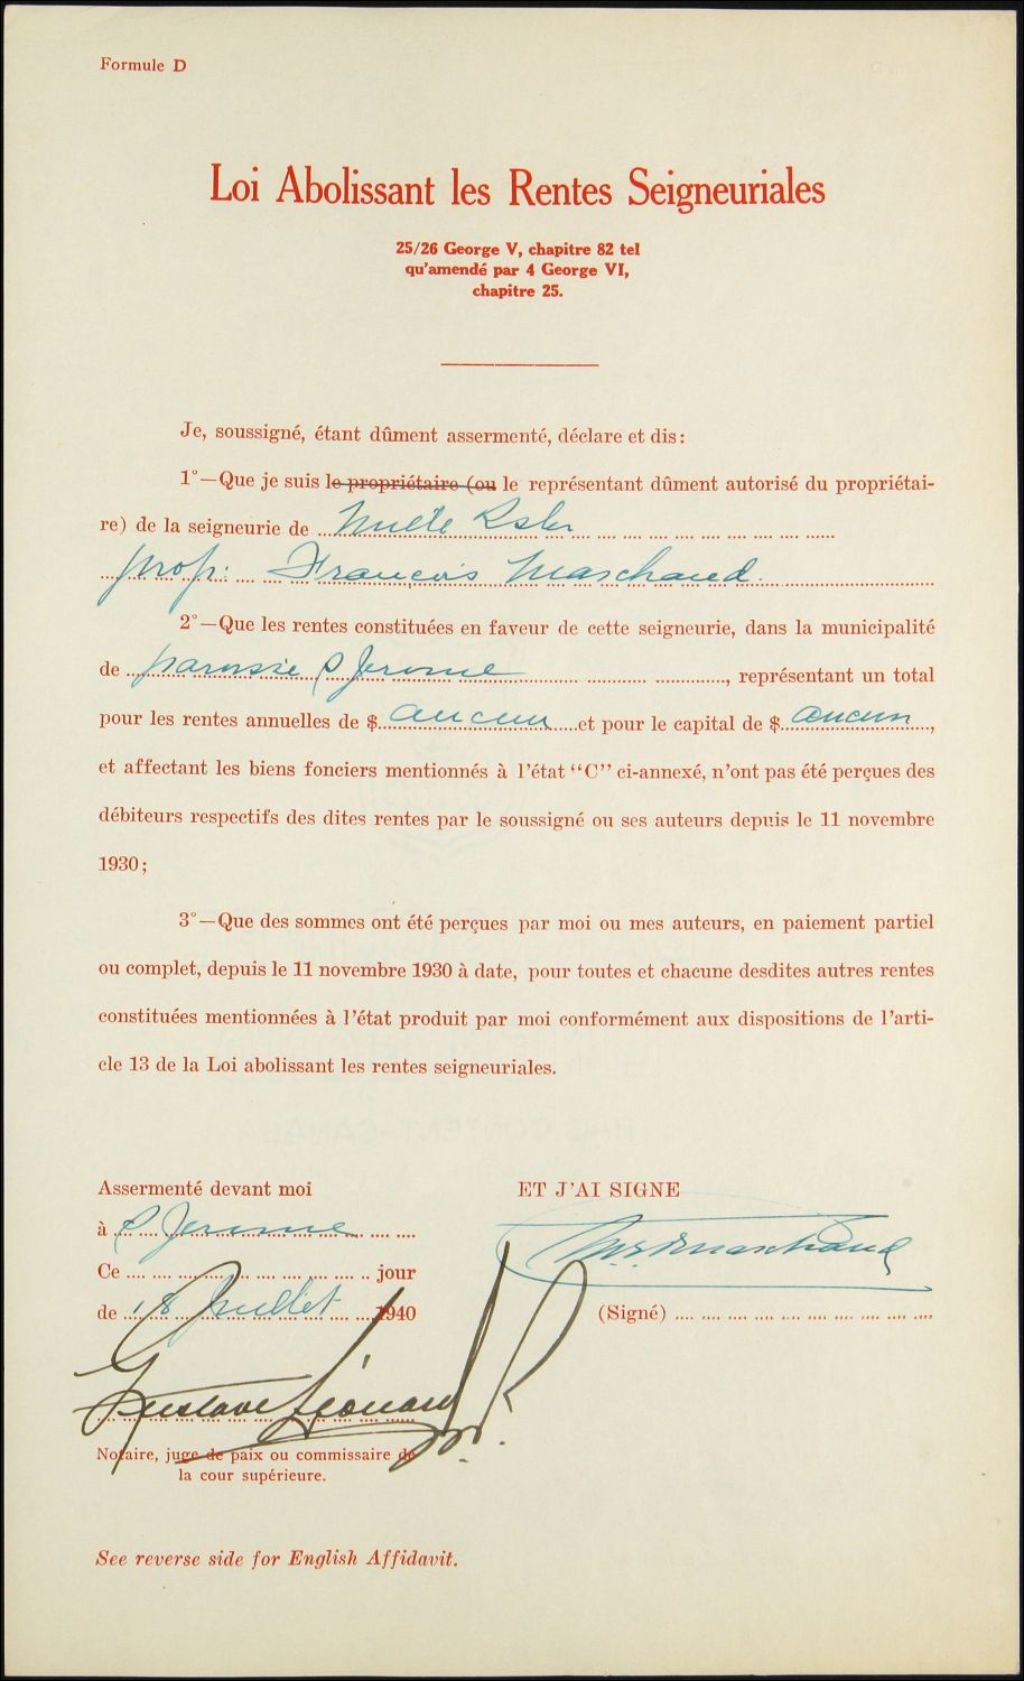 Formule D
Loi Abolissant les Rentes Seigneuriales
25/26 George V, chapitre 82 tel
qu'amendé par 4 George VI,
chapitre 25.
Je, soussigné, étant dûment assermenté, déclare et dis:
1°—Que je suis le propriétaire (ou le représentant dûment autorisé du propriétai-
re) de la seigneurie de
prop: Francois Marchand
2°—Que les rentes constituées en faveur de cette seigneurie, dans la municipalité
de paroisse S Jerome, représentant un total
pour les rentes annuelles de $ aucun et pour le capital de $ aucun,
et affectant les biens fonciers mentionnés à l'état "C" ci-annexé, n'ont pas été perçues des
débiteurs respectifs des dites rentes par le soussigné ou ses auteurs depuis le 11 novembre
1930;
3°—Que des sommes ont été perçues par moi ou mes auteurs, en paiement partiel
ou complet, depuis le 11 novembre 1930 à date, pour toutes et chacune desdites autres rentes
constituées mentionnées à l'état produit par moi conformément aux dispositions de l'arti-
cle 13 de la Loi abolissant les rentes seigneuriales.
Assermenté devant moi
à S Jerome
Ce jour
de 18 Juillet 1940
Gustave Léonard
Notaire, juge de paix ou commissaire de
la cour supérieure.
ET J'AI SIGNE
Marchand
(Signé)
See reverse side for English Affidavit.